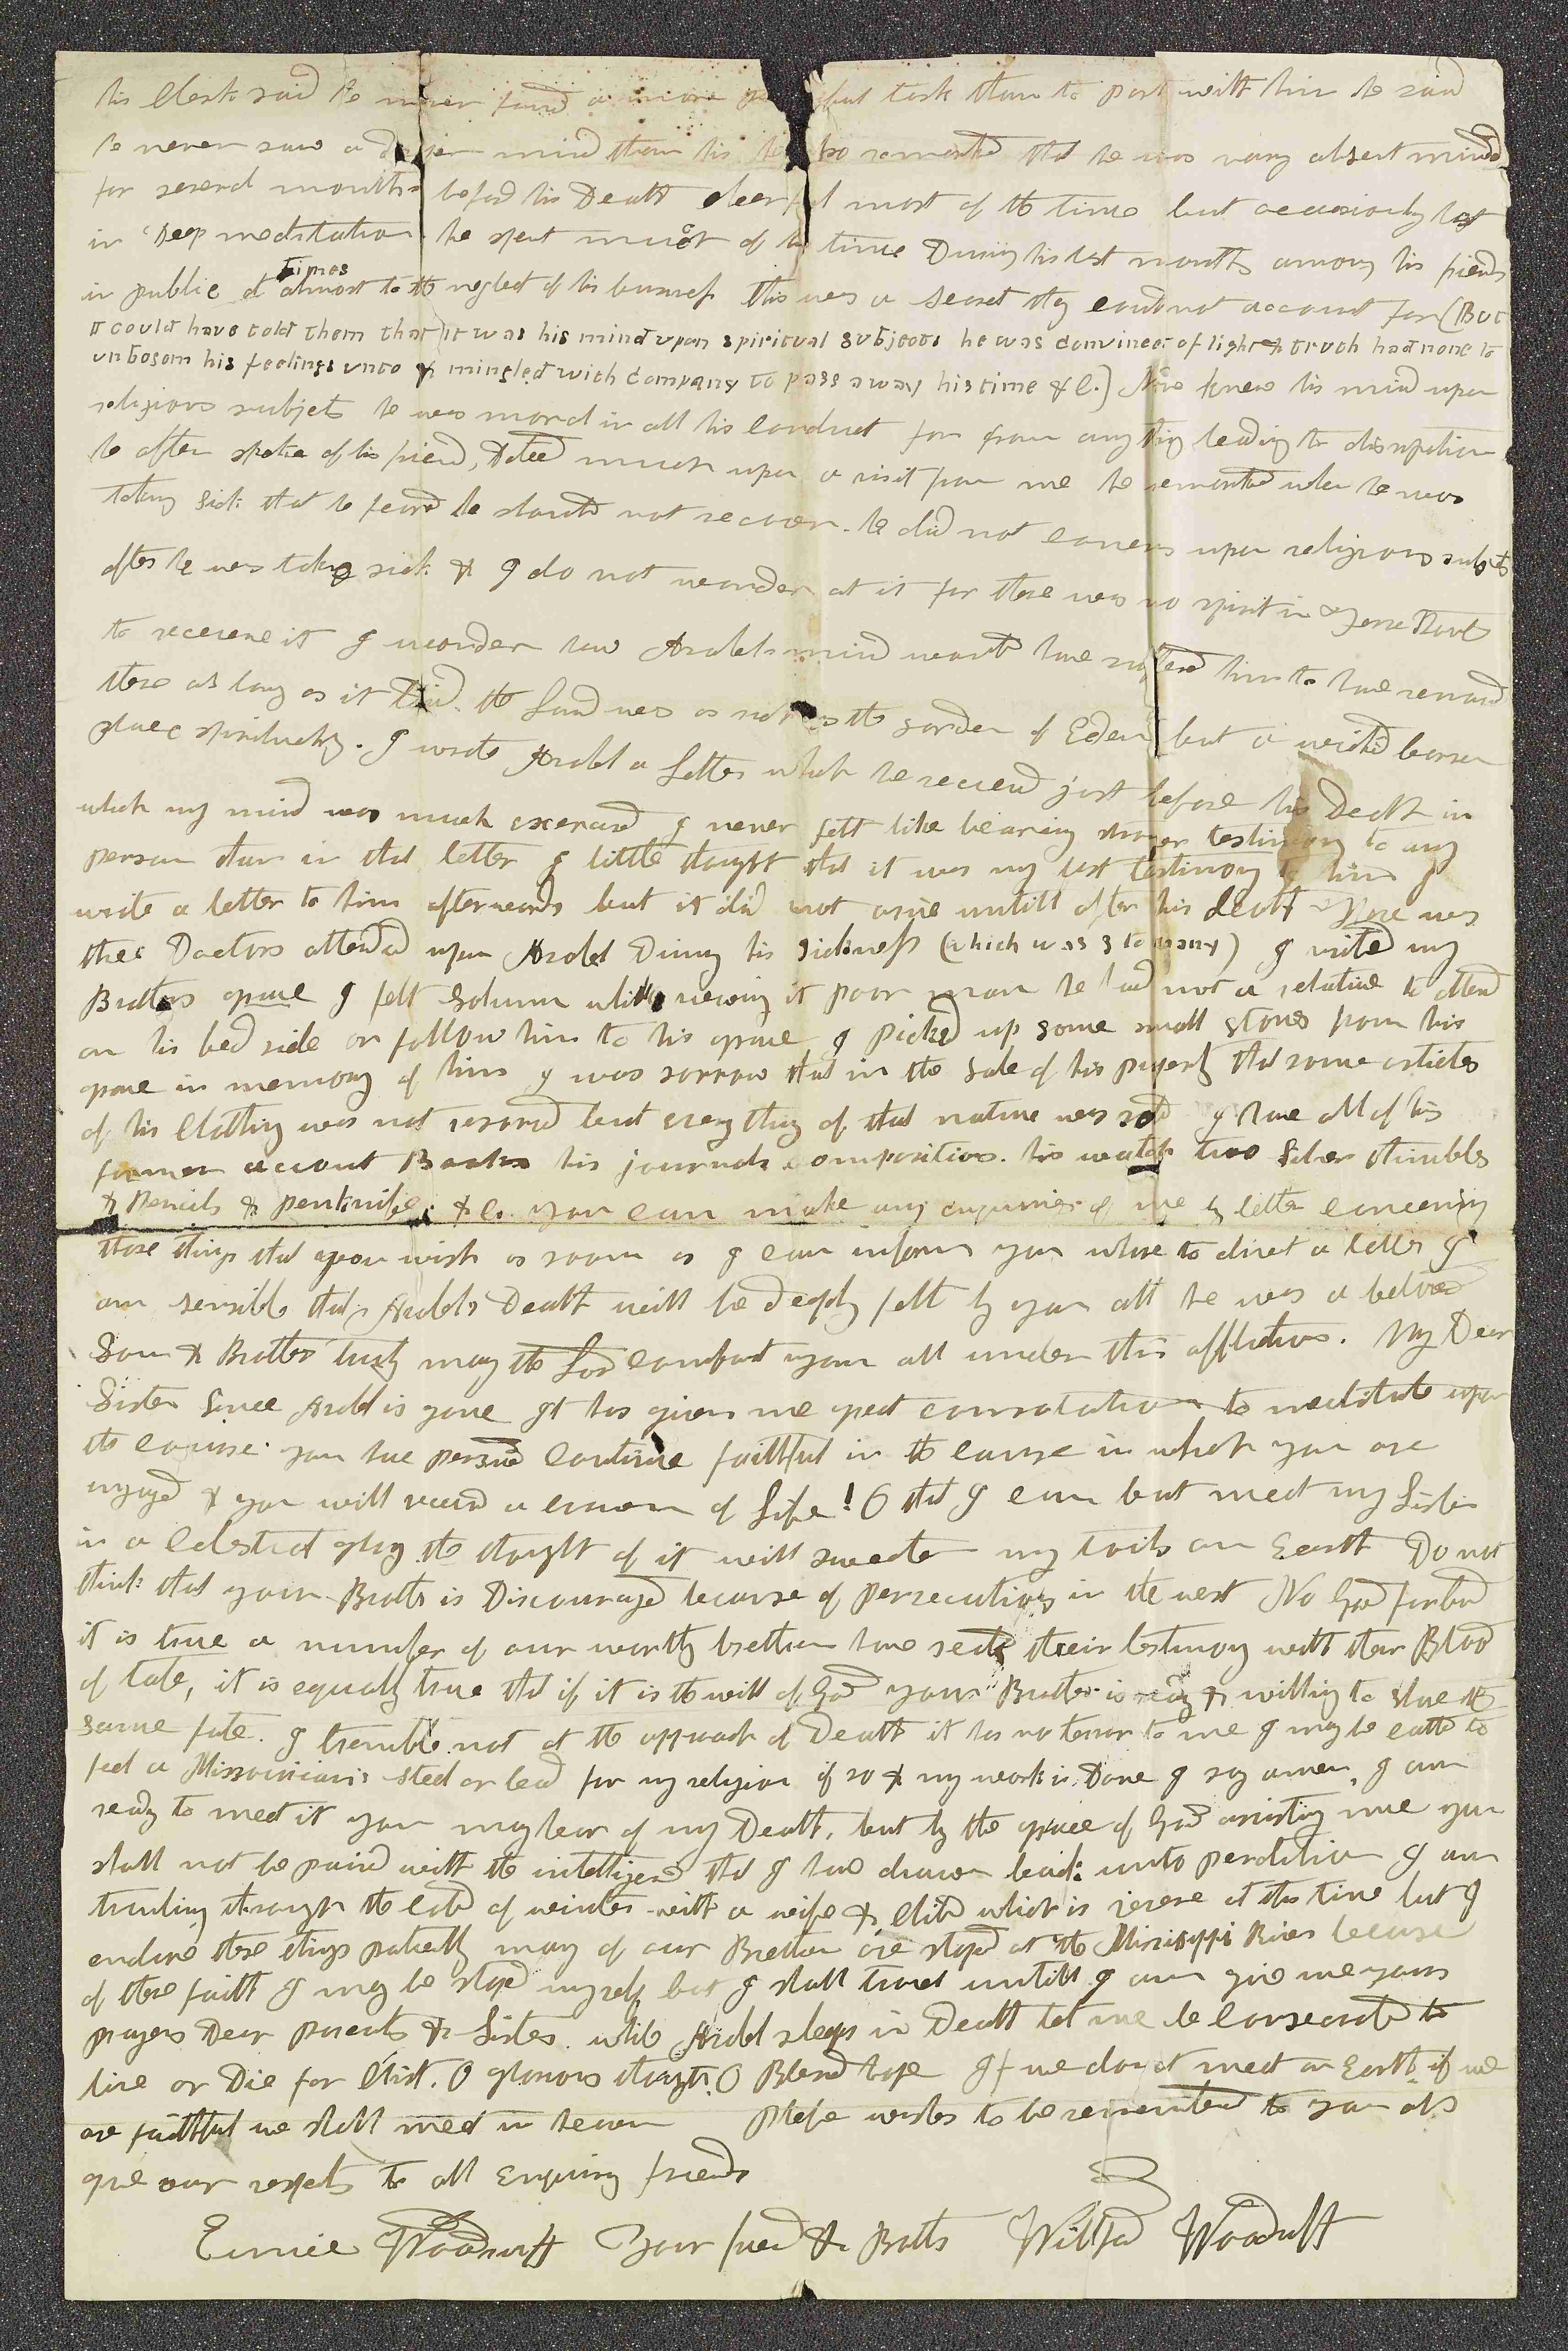 his Clerk said he never found a more painful task than to part with him he said
he never saw a deeper mind than his he also remarked that he was vary absent minded
for several months before his Death cheerful most of the time but occasionly lost
in deep meditation he spent much of his time During his last months among his friends
in public at times almost to the neglect of his business this was a secret they could not account for (But
I could have told them that it was his mind upon spiritual subjects he was convinced of light & truth had none to
unbosom his feelings unto & mingled with company to pass away his time &c.) None knew his mind upon
religious subjets he was moral in all his conduct far from any thing leading to dissipation
he often spoke of his friend, & doted much upon a visit from me he remarked when he was
taking sick that he feared he should not recover. he did not convers upon religious subjects
after he was taking sick & I do not wonder at it for there was no spirit in Terre Haute
to receive it I wonder how Asahels mind would have suffered him to have remaind
there as long as it did. the Land was as rich as the garden of Eden but a wicked barren
place spiritually. I wrote Asahel a letter which he received just before his Death in
which my mind was much exercised I never felt like bearing stronger testimony to any
person than in that letter I little thought that it was my last testimony to him I
write a letter to him afterwards but it did not arive untill after his death There was
three Doctors attended upon Asahel During his sickness (which was 3 to many) I visited my
Brothers grave I felt Solumn while viewing it poor man he had not a relative to attend
on his bed side or follow him to his grave I picked up some small stones from his
grave in memory of him I was sorrow that in the Sale of his property that some articles
of his Clothing was not reserved but evry thing of that nature was sold I have all of his
former account Books his journals compositions. his watch two Silver thimbles
& Pencils & penknife &c. you can make any enquiries of me by letter concerning
those things that you wish as soon as I can inform you where to direct a letter I
am sensible that Asahels Death will be deeply felt by you all he was a beloved
Son & Brother truly may the Lord comfort you all under this affliction. My Dear
Sister Since Asahel is gone It has given me great consolation to meditate upon
the course you have persued continue faithful in the cause in which you are
engaged & you will receive a crown of Life! O that I can but meet my Sister
in a Celestial glory the thought of it will sweeten my toils on Earth Do not
think that your Brother is Discouraged because of persecutions in the west No God forbid
it is true a number of our worthy brethren have seald their testimony with their Blood
of late, it is equally true that if it is the will of God your Brother is ready & willing to share the
same fate. I tremble not at the approach of Death it has no terror to me I may be called to
feel a Missourian's steel or lead for my religion if so & my work is Done I say amen, I am
ready to meet it you may hear of my Death, but by the grace of God assisting me you
shall not be pained with the intelligence that I have drawn back unto perdition I am
traveling through the cold of winter with a wife & Child which is severe at this time but I
endure these things patiently many of our Brethren are stoped at the Missisippi River because
of there faith I may be stoped myself but I shall travel untill I am give me your
prayers Dear parents & Sister. while Asahel sleeps in Death let me be consecrated to
live or Die for Christ. O glorious thought O Blessed hope If we do not meet on Earth if we
are faithful we shall meet in heaven Phebe wishes to be remembered to you all
give our respects to all Enquiring friends
Eunice Woodruff Your friend & Brother Willford Woodruff